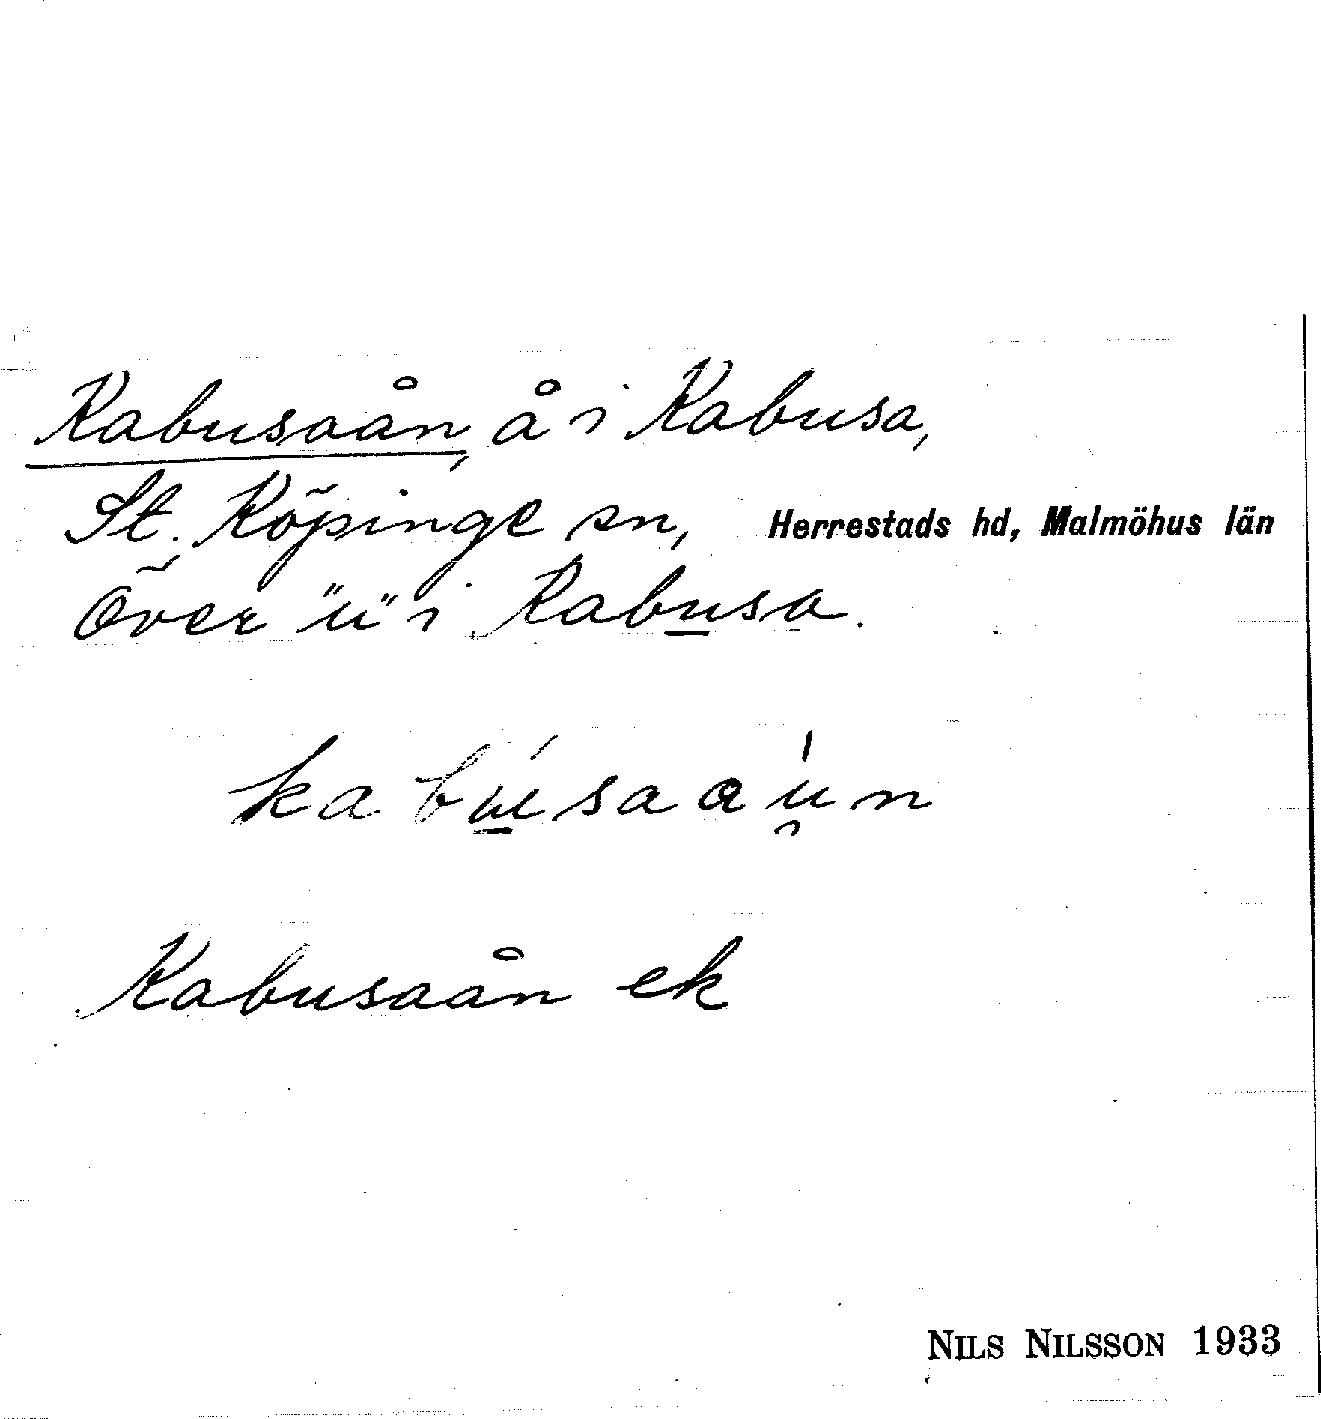 Kabusaån, å i Kabusa,
St. Köpinge sn, Herrestads hd, Malmöhus län
Över "u" i Kabusa.
kabú̲saau̯̍n
Kabusaån ek
NILS NILSSON 1933